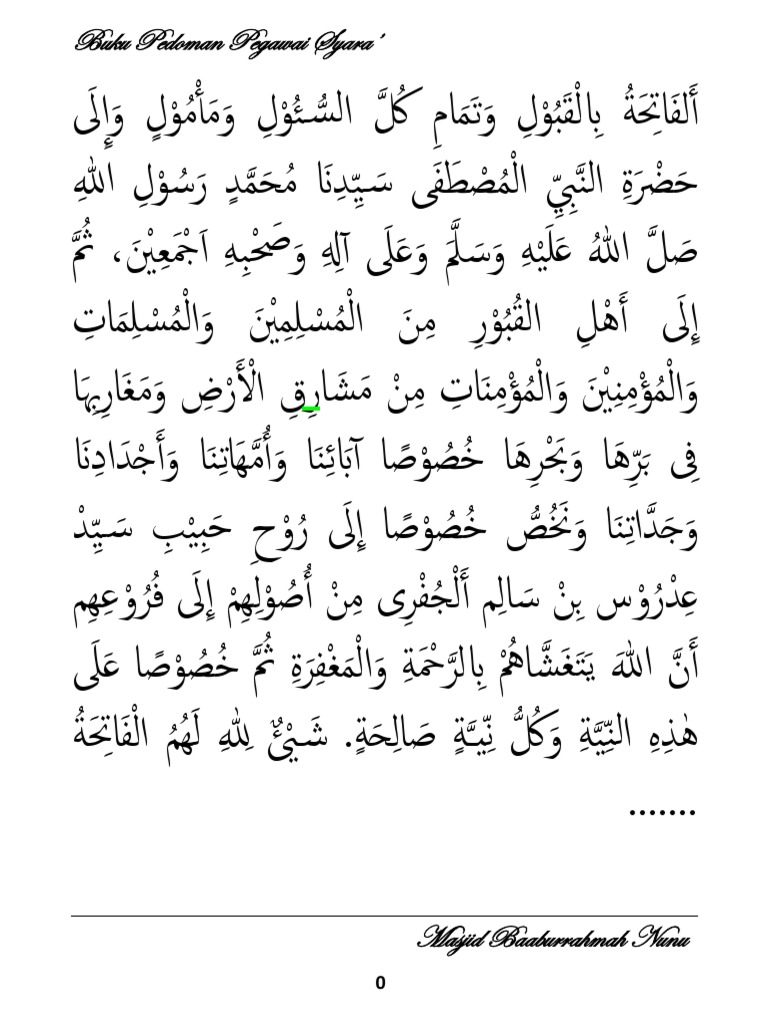 Buku Pedoman Pegawai Syara'
أَلفَاتِحَةُ بِالْقَبُوْلِ وَتَمَامِ كُلَّ السُّئُوْلِ وَمَأْمُوْلٍ وَإِلَى
حَضْرَةِ النَّبِيِّ الْمُصْطَفَى سَيِّدِنَا مُحَمَّدٍ رَسُوْلِ اللهِ
صَلَّ اللهُ عَلَيْهِ وَسَلَّمَ وَعَلَى آلِهِ وَصَحْبِهِ اَجْمَعِيْنَ، ثُمَّ
إِلَى أَهْلِ القُبُوْرِ مِنَ الْمُسْلِمِيْنَ وَالْمُسْلِمَاتِ
وَالْمُؤْمِنِيْنَ وَالْمُؤْمِنَاتِ مِنْ مَشَارِقِ الْأَرْضِ وَمَغَارِبِهَا
فِى بَرِّهَا وَبَحْرِهَا خُصُوْصًا آبَائِنَا وَأُمَّهَاتِنَا وَأَجْدَادِنَا
وَجَدَّاتِنَا وَنَخُصُّ خُصُوْصًا إِلَى رُوْحِ حَبِيْبِ سَيِّدْ
عِدْرُوْس بِنْ سَالِم أَلْجُفْرِى مِنْ أُصُوْلِهِمْ إِلَى فُرُوْعِهِم
أَنَّ اللهَ يَتَغَشَّاهُمْ بِالرَّحْمَةِ وَالْمَغْفِرَةِ ثُمَّ خُصُوْصًا عَلَى
هٰذِهِ النِّيَّةِ وَكُلُّ نِّيَّةٍ صَالِحَةٍ. شَيْئٌ لِلهِ لَهُمُ الْفَاتِحَةُ
.......
Masjid Baaburrahmah Nunu
0